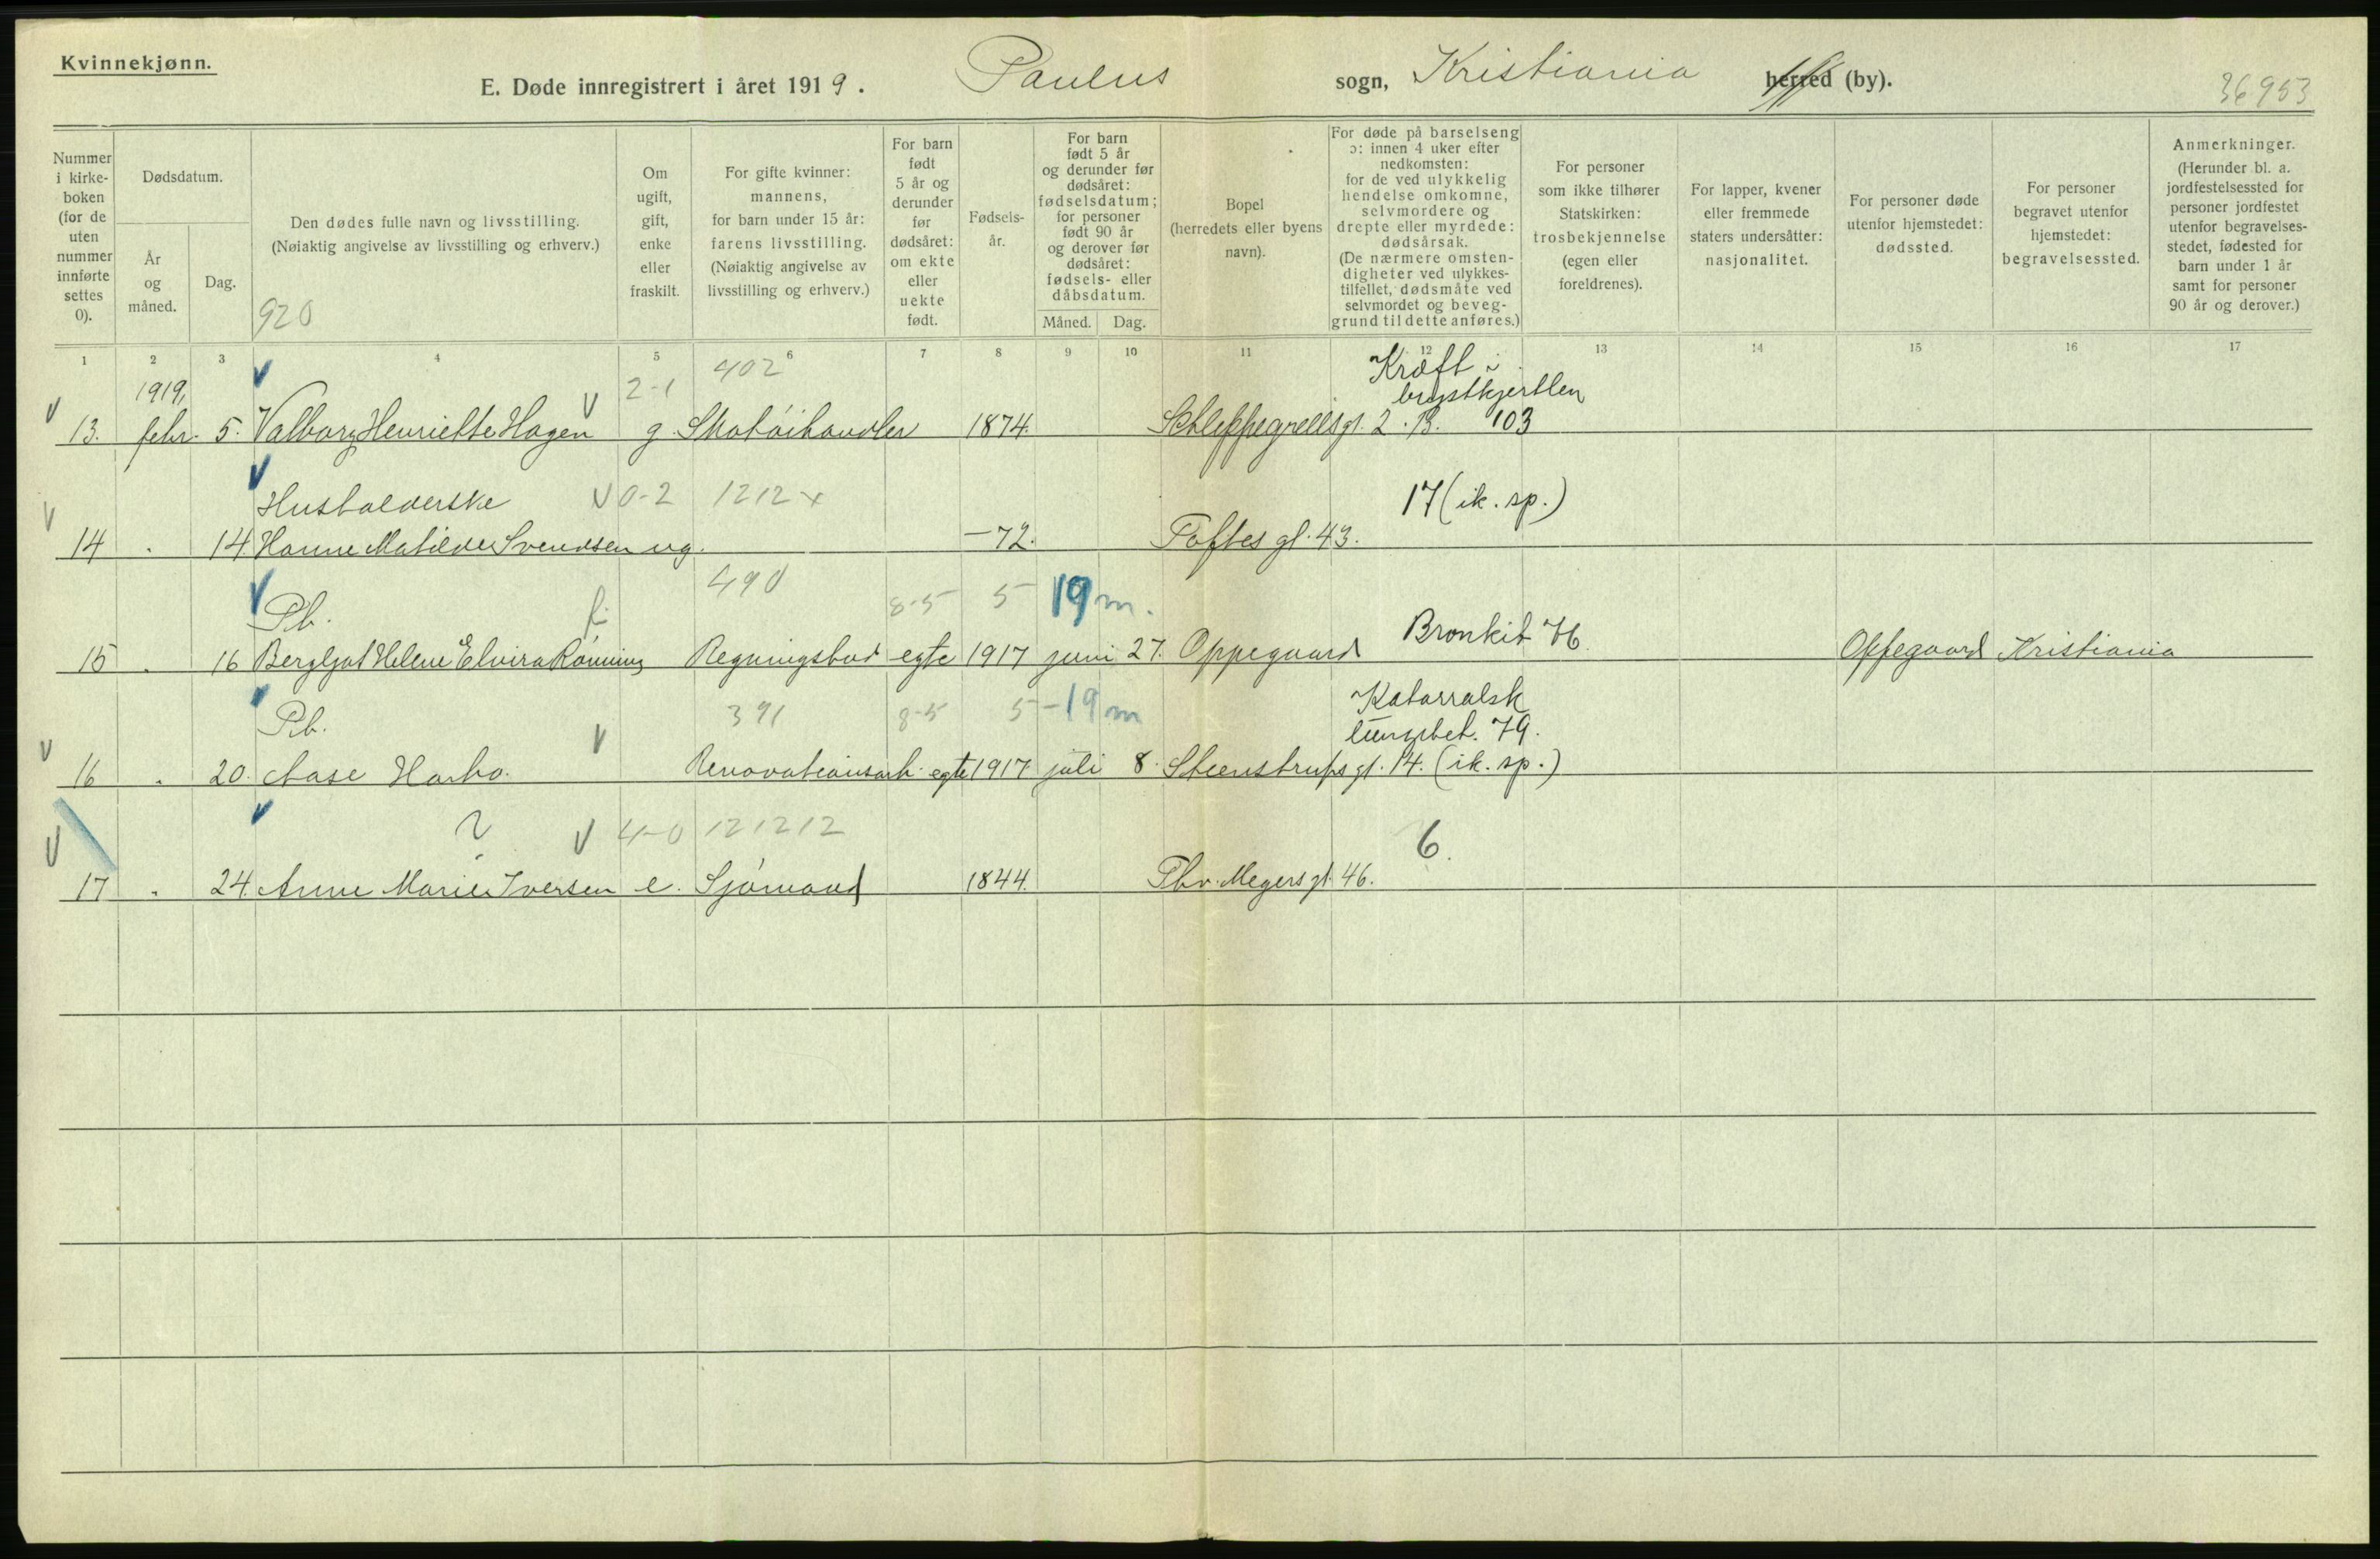 Kvinnekjønn.
E. Døde innregistrert i året 1919. Paulus sogn, Kristiania herred (by). 36953
Nummer i kirke- boken (for de uten nummer innførte settes 0).
Dødsdatum.
År og måned.
Dag.
Den dødes fulle navn og livsstilling.
(Nøiaktig angivelse av livsstilling og erhverv.)
920
Om ugift, gift, enke eller fraskilt.
For gifte kvinner: mannens, for barn under 15 år: farens livsstilling. (Nøiaktig angivelse av livsstilling og erhverv.)
For barn født 5 år og derunder før dødsåret: om ekte eller uekte født.
Fødsels- år.
For barn født 5 år og derunder før dødsåret: fødselsdatum; for personer født 90 år og derover før dødsåret: fødsels- eller dåbsdatum.
Måned. Dag.
Bopel (herredets eller byens navn).
For døde på barselseng ɔ: innen 4 uker efter nedkomsten: for de ved ulykkelig hendelse omkomne, selvmordere og drepte eller myrdede: dødsårsak. (De nærmere omsten- digheter ved ulykkes- tilfellet, dødsmåte ved selvmordet og beveg- grund til dette anføres.)
For personer som ikke tilhører Statskirken: trosbekjennelse (egen eller foreldrenes).
For lapper, kvener eller fremmede staters undersåtter: nasjonalitet.
For personer døde utenfor hjemstedet: dødssted.
For personer begravet utenfor hjemstedet: begravelsessted.
Anmerkninger. (Herunder bl. a. jordfestelsessted for personer jordfestet utenfor begravelses- stedet, fødested for barn under 1 år samt for personer 90 år og derover.)
1 2 3 4 5 6 7 8 9 10 11 12 13 14 15 16 17
1919, 2-1 402 Kræft i
brystkjertlen
13. febr. 5. Valborg Henriette Hagen g. Skotöihandler 1874. Schleppegrellsgt. 2. B. 103
Husholderske 0-2 1212 x 17 (ik. sp.)
14 . 14 Hanne Matilde Svendsen ug. -72. Toftes gt. 43.
Pb. 490 8-5 5 19 m.
15 . 16 Bergljot Helene Elvira Rönning Regningsbud egte 1917 juni 27. Oppegaard Bronkit 76. Oppegaard Kristiania
Pb. 391 8-5 5 -19 m Katarralsk
lungebet. 79.
16 . 20. Aase Harbo. Renovationsarb. egte 1917 juli 8. Steenstrups gt. 14. (ik. sp.)
4-0 121212 6.
17 . 24. Anne Marie Iversen e. Sjömand 1844. Thv. Meyers gt. 46.